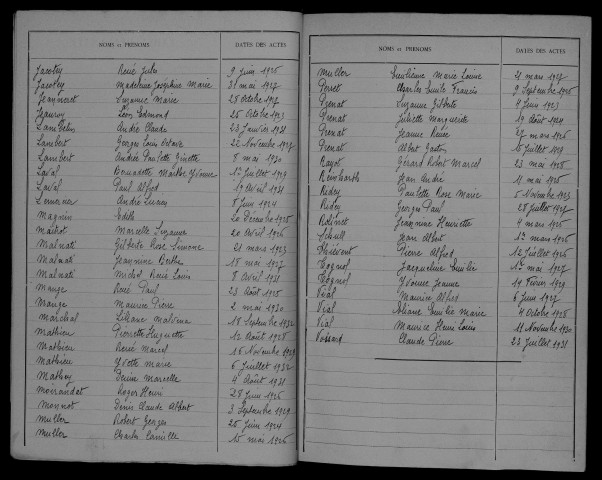 NOMS et PRENOMS DATES DES ACTES
Jacotey René Jules 9 Juin 1926
Jacotey Madeleine Josephine Marie 31 mai 1927
Jeanneret Suzanne Marie 28 Octobre 1927
Jeanroy Léon Edmond 25 Octobre 1923
Lambelin André Claude 23 Janvier 1931
Lambert Georges Louis 22 Novembre
Lambert Andrée Paulette Ginette 8 mai 1930
Laval Bernadette Marthe Yvonne 12 Juillet 1929
Laval Paul Alfred 19 Avril 1931
Lemercier André Lucien 8 Juin 1924
Magnin Edith Décembre 1925
Maillot Marcelle Suzanne 20 Avril 1926
Malnati Gilberte Rose Simone 21 mars 1923
Malnati Jeannine Berthe 18 mai 1927
Malnati Michel René Louis 8 Avril 1931
Mange René Paul 23 Août 1925
Mange Maurice Pierre 2 mai 1930
Marchal Liliane Malvina 18 Septembre 1932
Mathieu Pierrette Huguette 12 Août 1928
Mathieu René Marcel 16 Novembre 1929
Mathieu Yvette Marie 6 Juillet 1932
Mathey Denise Marcelle 4 Août 1931
Moirandat Roger Henri 28 Juin 1926
Monnot Denis Claude Albert 3 Septembre 1929
Muller Robert Georges 25 Juin 1924
Muller Charles Camille 15 mai 1926
NOMS et PRENOMS DATES DES ACTES
Muller Emilienne Marie Louise 21 mars 1927
Perret Charles Emile Francis 9 Septembre 1926
Prenat Suzanne Gilberte 4 Juin 1923
Prenat Juliette Marguerite 19 Août 1924
Prenat Jeanne Renée 27 mars 1926
Prenat Albert Gaston 10 Juillet 1929
Rayot Gérard Robert Marcel 23 mai 1928
Reinbarth Jean André 4 mai 1926
Ridey Paulette Rose Marie 5 Novembre 1923
Ridey Georges Paul 28 Juillet 1927
Robinet Jeannine Henriette 4 mars 1926
Schull Jean Albert 1er mars 1926
Thiévent Pierre Alfred 12 Juillet 1926
Tognol Jacqueline Emilie 1er mai 1927
Tognol Yvonne Jeanne 19 Février 1929
Vial Maurice Alfred 6 Juin 1927
Vial Eliane Emilie Marie 4 Octobre 1928
Vial Maurice Henri Louis 11 Novembre 1930
Vossard Claude Pierre 23 Juillet 1931